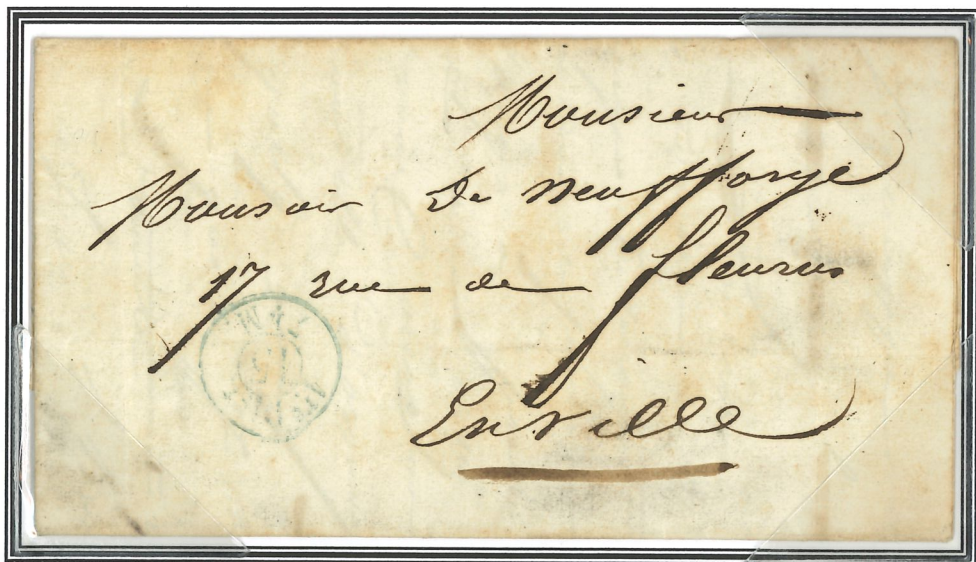 Monsieur
Monsieur De Neufforge
17 rue de fleurus
En Ville